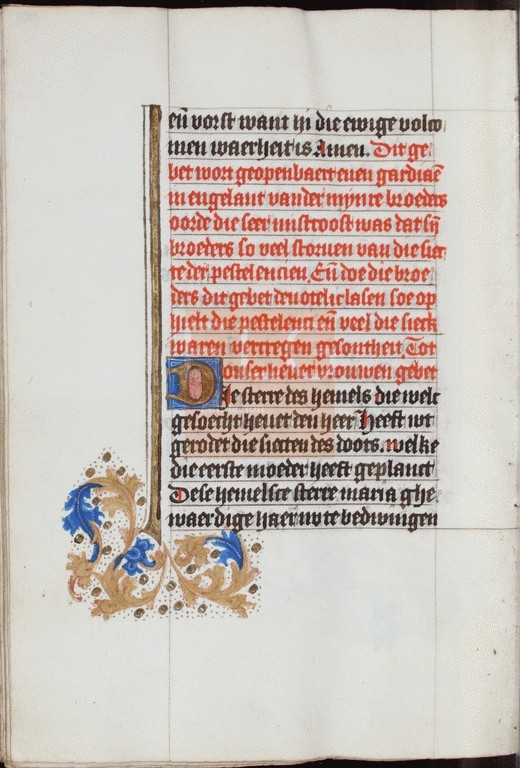 eñ vorst want hi die ewige volco
men waerheit is Amen. Dit ge
bet wort geopenbaert enen gardiaē
in engelant vander mynre broeders
oorde die seer mistroost was dat sij
broeders so veel storuen van die siec
te der pestelencien. Eñ doe die broe
ders dit gebet deuotelic lasen soe op
hielt die pestelenci eñ veel die sieck
waren vercregen gesontheit. Tot
onser lieuer vrouwen gebet
Die sterre des hemels die welc
gesoecht heuet den heer Heeft wt
gerodet die siecten des doots. welke
die eerste moeder heeft geplantt
Dese hemelsce sterre maria ghe
waerdige haer nv te bedwingen